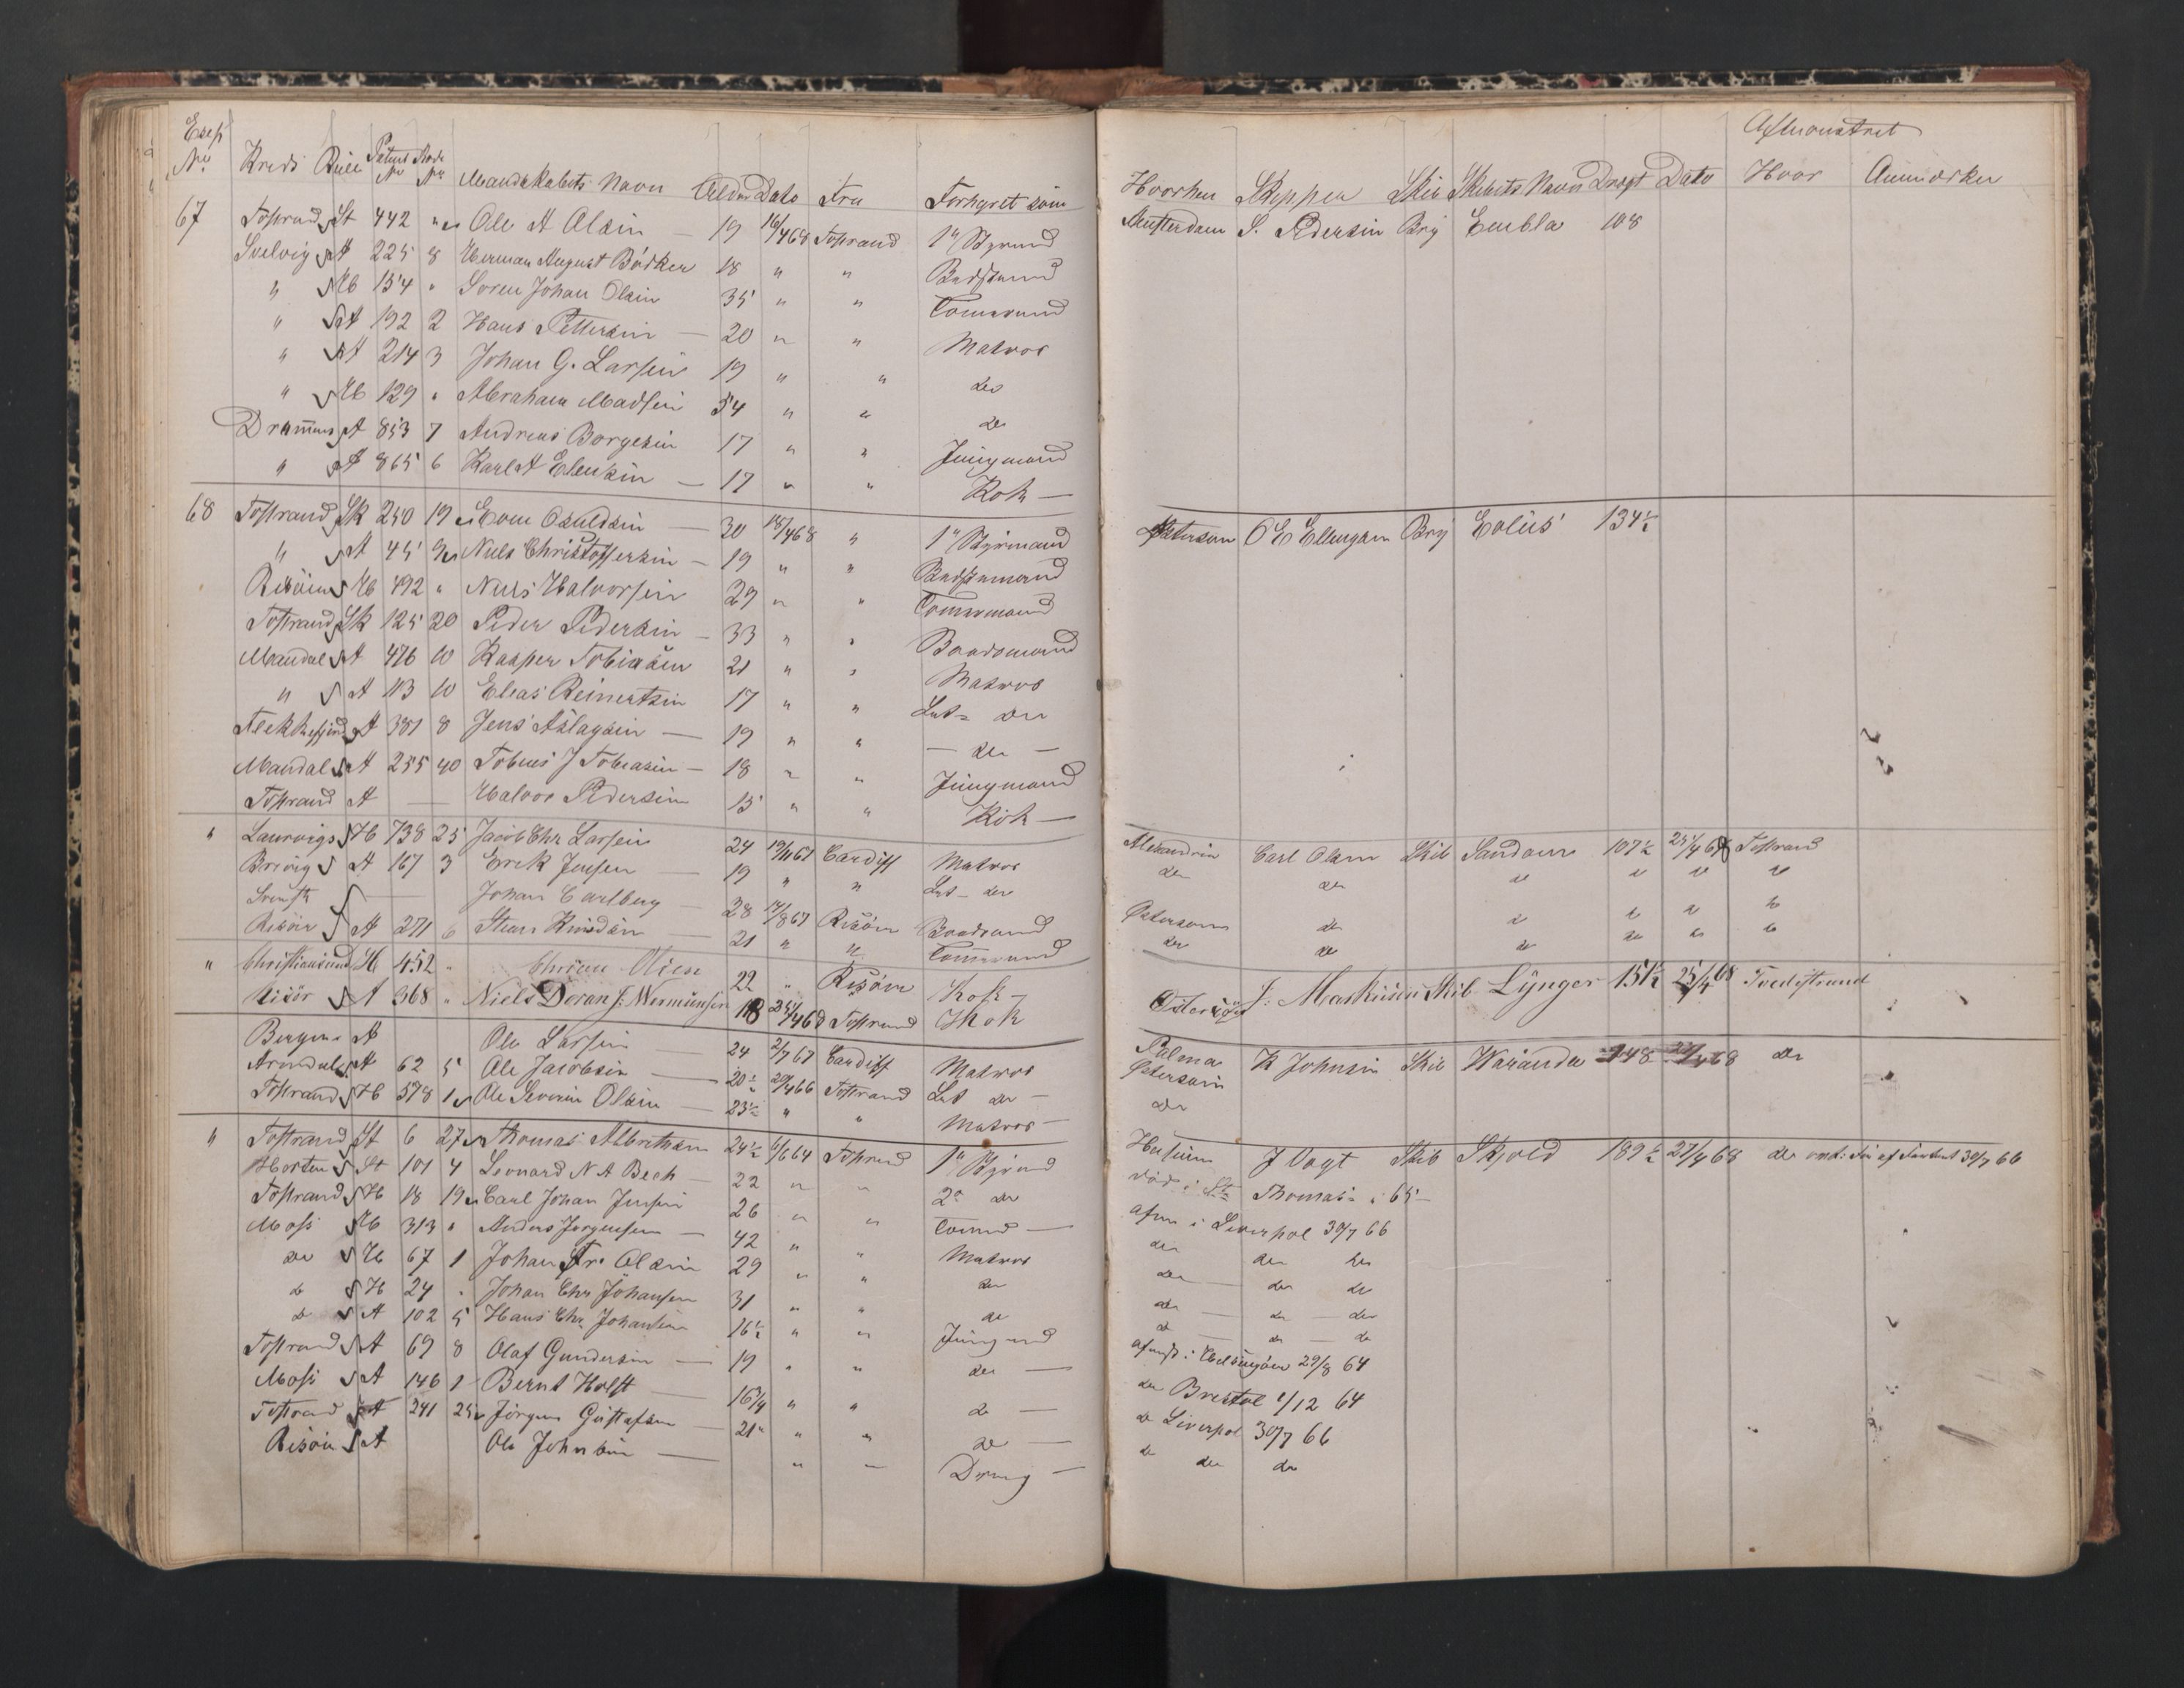 Exep No Kreds Rulle Patent No Rode No Mandskabets Navn Alder Dato Fra Forhyret som
67 Tostrand St 442 " Ole A Olsen — 19 16/4 68 Tostrand 1ste Styrmd
Svelvig A 225 8 Herman August Bödker 18 " " Badstmd
" Hb 154 " Soren Johan Olsen 35 " " Tømermd
" A 192 2 Hans Pettersen — 20 " " Matros
" A 214 3 Johan G. Larsen 19 " " do
" Hb 129 " Abraham Madsen 54 " " do
Drammens A 853 7 Andreas Borgesen 17 " " Jungmand
" A 865 6 Karl A Ellevsen — 17 " " Kok —
68 Tostrand Sk 250 19 Osuldsen — 30 18/4 68 " 1ste Styrmand
" A 45 Niels Christoffersen — 19 " " Badstmand
Risöer Hb 492 " Niels Halvorsen 29 " " Tømermand
Tostrand Sk 125 20 Peder Pedersen — 33 " " Baadsmand
Mandal A 476 10 Kasper Tobiasen 21 " " Matros
" A 113 10 Elias Reinertsen 17 " " Let- do
Flekkefjord A 381 8 Jens Aslagsen — 19 " " — do —
Mandal A 255 40 Tobias J Tobiasen — 18 " " Jungmand
Tostrand A — Halvor Pedersen 15 " " Kok —
" Laurvigs Hb 738 25 Jacob Chr Larsen 24 19/11 67 Cardiff Matros
Brevig A 167 3 Erik Jensen — 19 " " Let- do
Svensk — Johan Carlberg — 28 14/8 67 Risöer Baadsmd
Risöer A 271 6 — 21 " " Tømermd
" Christiansund H 452 " Olsen 22 " Risöer Kok —
Risör A 368 " Niels J. Wermundsen 18 25/4 68 Tostrand Kok
Bergen A Ole Larsen — 24 2/7 67 Cardiff Matros
Arendal A 62 5 Ole Jacobsen — 20½ 20/4 66 Tostrand Let do —
Tostrand Hb 578 1 Ole Severin Olsen — 23½ " " Matros —
" Tostrand St 6 27 Thomas Albretsen 24½ 6/6 64 Tostrand 1ste Styrmd
Horten St 101 4 Leonard N A Bech — 22 " " 2den do
Tostrand H 18 19 Carl Johan Jensen 26 " " Tømmd —
Moss Hb 313 " Anders Jorgensen — 42 " " Matros
do Hb 67 1 Johan Fr. Olsen 29 " " do
do H 24 " Johan Chr Johansen 31 " " do
do A 102 5 Hans Chr Johansen 16½ " " Jungmd
Tostrand A 69 8 Olaf Gundersen — 19 " " do —
Moss A 146 1 Bernt Holst — 16¾ " " do —
Tostrand A 241 25 Jörgen Gustafsen — 21 " " do —
Risöer A Ole Johnsen — " — Dreng —
Afmönstret
Hvorhen Skipper Skib Skibets Navn Drægt Dato Hvor Anmærkn
Amsterdam S. Pedersen Brig Embla 108
Østersøen O E Ellingsen Brig Eolus 134½
Alexandria Carl Olsen Skib Sandøen 107½ 25/4 68 Tostrand
do do do do do do
Østersøen do do do do do
do do do do do do
Østersøen J: Markusen Skib Lynger 151½ 25/4 68 Tvedestrand
Palma K Johnsen Skib Waranda 148 68 do
Østersøen
do
Husum J Vogt Skib Skjold 189½ 27/4 68 do 30/7 66
död i St Thomas i 65 —
afm i Liverpol 30/7 66
do do do
do — do do
do — do — do
do — do — do
afmst i Helsingör 29/8 64
do Bristol 1/12 64
do Liverpol 30/7 66
do do do